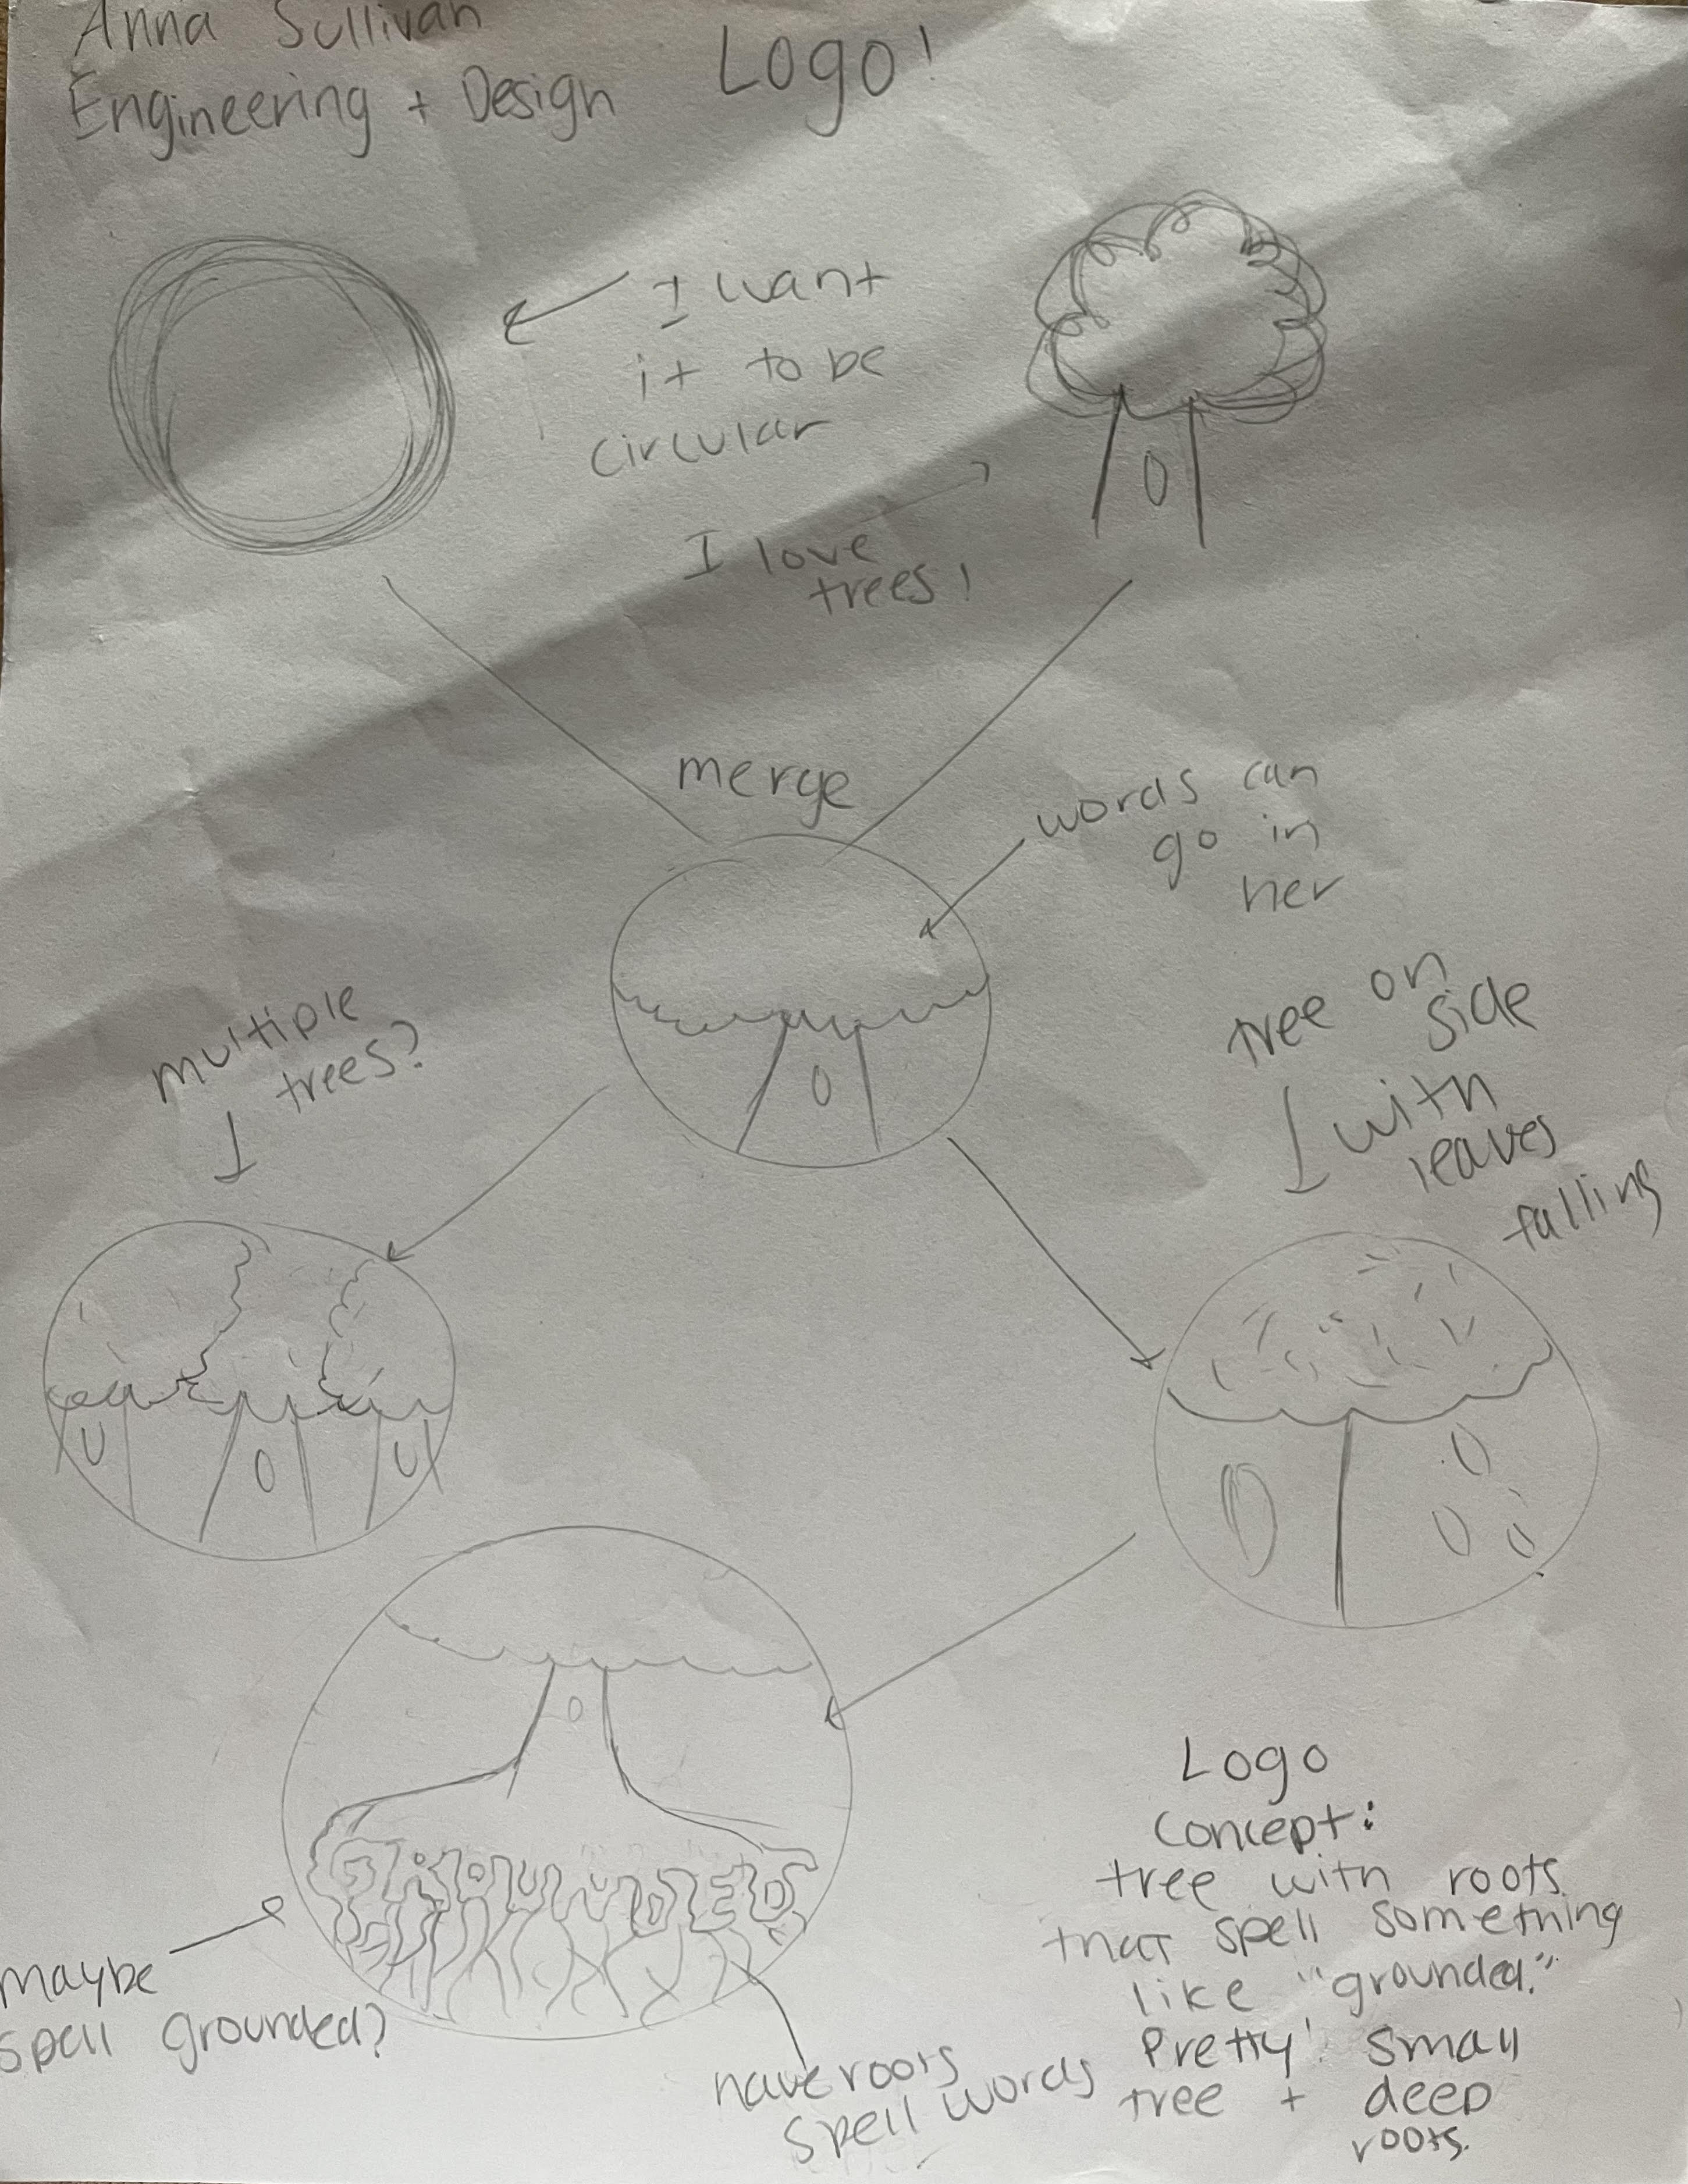 Anna Sullivan
Engineering + Design
Logo!
I want
it to be
circular
I love
trees!
merge
words can
go in
her
multiple
trees?
tree on
side
with
leaves
falling
GROUNDED
maybe
spell grounded?
have roots
spell words
Logo
Concept:
tree with roots
that spell something
like "grounded."
Pretty! Small
tree + deep
roots.